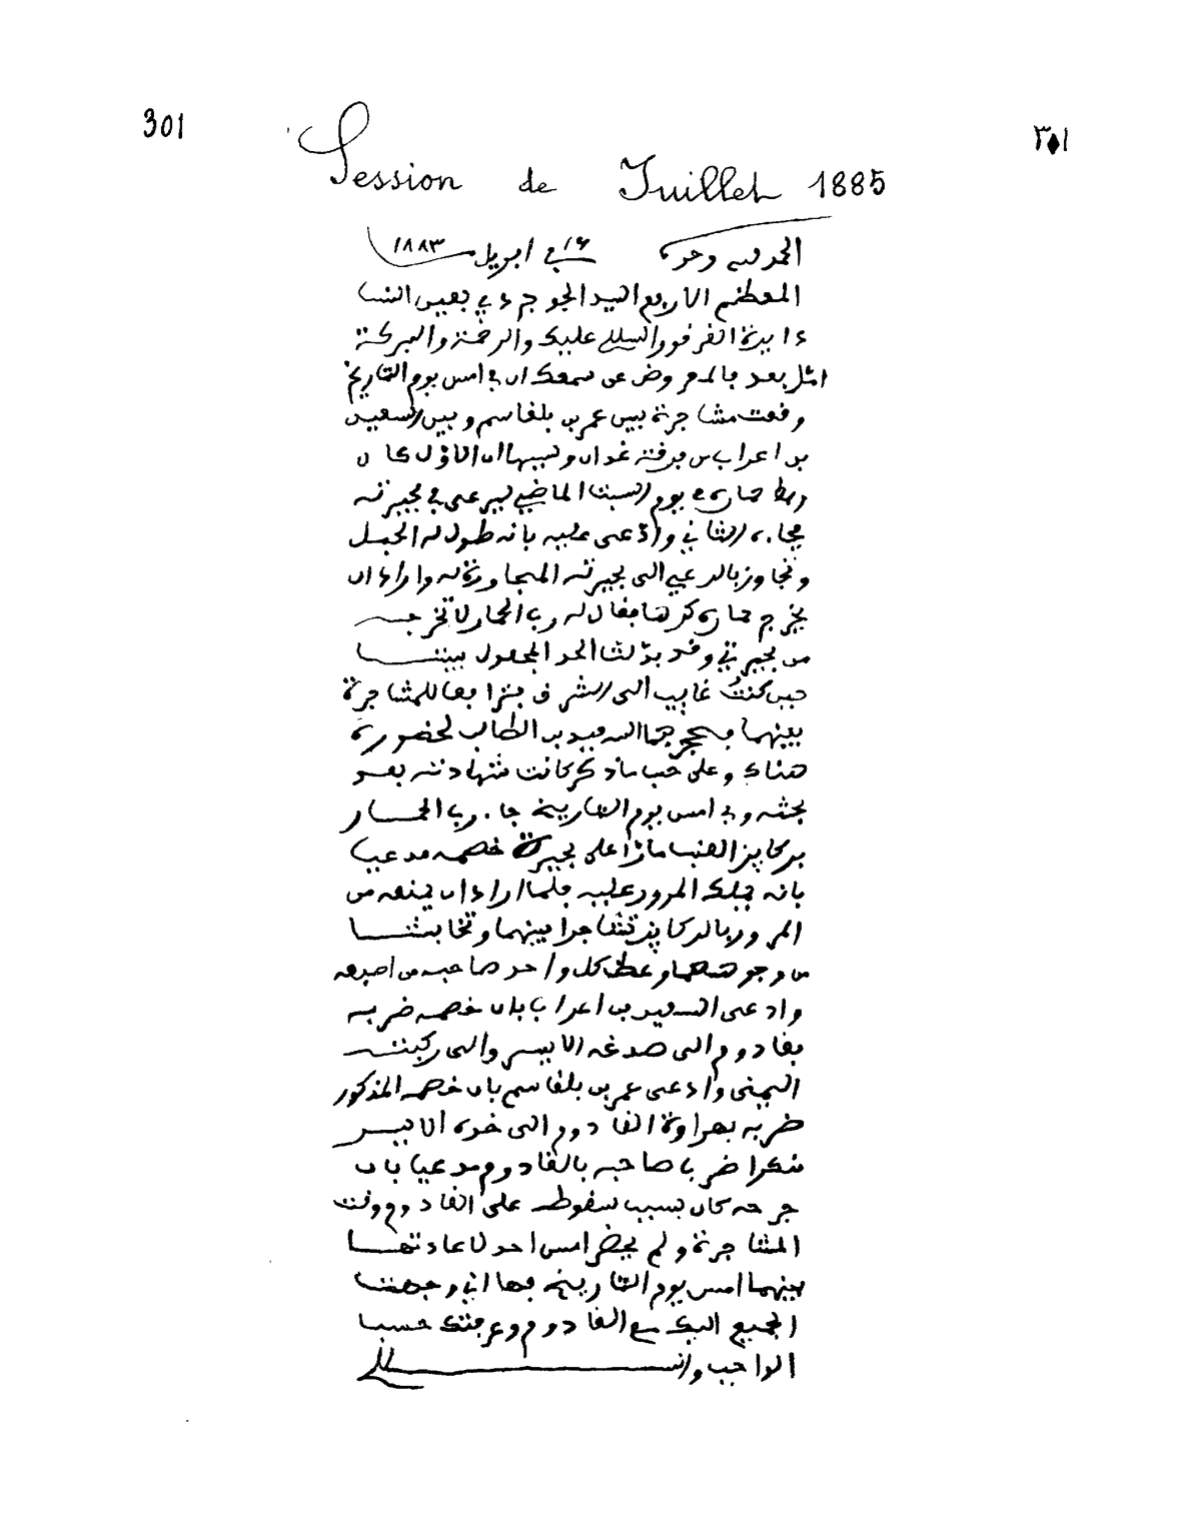 301
٣٥١
Session de Juillet 1885
الحمد لله وحده في ابريل ١٨٨٣
المعظم الارفع السيد الجوج دي بعيس النسا
ء ابدة الفرفور السلام عليك والرحمة والبركة
امثل بعد فالمعروض عن سمعك ان في امس يوم التاريخ
وقعت مشاجرة بين عمر بن بلقاسم وبين السعيد
بن اعراب من فرقة غدان وسببها ان الاول كان
ربط حماره في يوم السبت الماضي ليرعى في بحيرته
فجاء الثاني وادعى عليه بانه طول له الحبل
وتجاوز بالرعي الى بحيرته المجاورة له واراد ان
يخرج حماره كرها فقال له رب الحمار لا تخرجه
من بحيرتي وقد بدلت الحد المجعول بيننا
حين كنت غايب الى الشرق فترافعا للمشاجرة
بينهما فحجرهما السعيد بن الطالب لحضوره
هناك وعلى حسب ما ذكر كانت شهادته بعد
بحثه وفي امس يوم التاريخ جاء رب الحمار
بركايز العنب مارا على بحيرة خصمه مدعيا
بانه يملك المرور عليه فلما اراد ان يمنعه من
المرور بالركايز تشاجرا بينهما وتخابشا
من وجوههما وعظ كل واحد صاحبه من اصبعه
وادعى السعيد بن اعراب بان خصمه ضربه
بقادوم الى صدغه الايسر والى ركبته
اليمنى وادعى عمر بن بلقاسم بان خصمه المذكور
ضربه بهراوة القادوم الى خده الايسر
منكرا ضرب صاحبه بالقادوم مدعيا بان
جرحه كان بسبب سقوطه على القادوم وقت
المشاجرة ولم يحضر امس احد لاعادتها
بينهما امس يوم التاريخ فها اني وجهت
الجميع اليك مع القادوم وعرفتك حسبا
الواجب والسلام